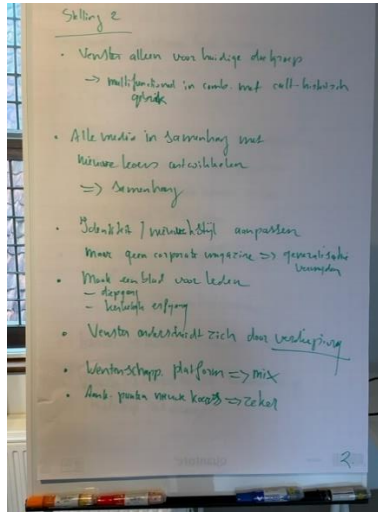 Stelling 2
• Venster alleen voor huidige doelgroep
→ multifunctional in comb. met cult-historisch
gebruik
• Alle media in samenhang met
nieuwe koers ontwikkelen
=> samenhang
• Identiteit / aanpassen
maar geen corporate magazine =>
• Maak een blad voor leden
– diepgang
– kerkelijk erfgoed
• Venster onderscheidt zich door verdieping
• Wetenschapp. platform => mix
• punten nieuwe koers => zeker
2.